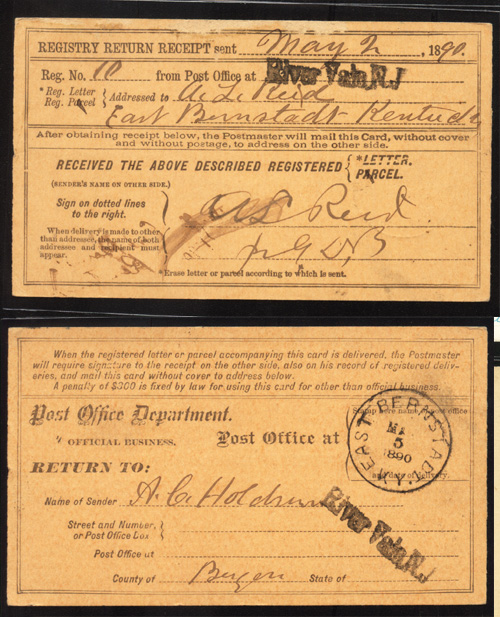 REGISTRY RETURN RECEIPT sent May 2, 1890.
Reg. No. 10 from Post Office at River Vale, N.J
*Reg. Letter
Reg. Parcel } Addressed to A. L. Reid
East Bernstadt Kentucky
After obtaining receipt below, the Postmaster will mail this Card, without cover
and without postage, to address on the other side.
RECEIVED THE ABOVE DESCRIBED REGISTERED { *LETTER.
PARCEL.
(SENDER'S NAME ON OTHER SIDE.)
Sign on dotted lines
to the right.
A L Reid
When delivery is made to other
than addressee, the name of both
addressee and recipient must
appear.
*Erase letter or parcel according to which is sent.
When the registered letter or parcel accompanying this card is delivered, the Postmaster
will require signature to the receipt on the other side, also on his record of registered deliv-
eries, and mail this card without cover to address below.
A penalty of $300 is fixed by law for using this card for other than official business.
Post Office Department.
OFFICIAL BUSINESS.
Post Office at
Stamp here name of post office
and date of delivery.
EAST BERNSTADT, KY.
5
1890
RETURN TO:
Name of Sender A. C. Holdrum
Street and Number,
or Post Office Box }
River Vale, N.J
Post Office at
County of Bergen State of